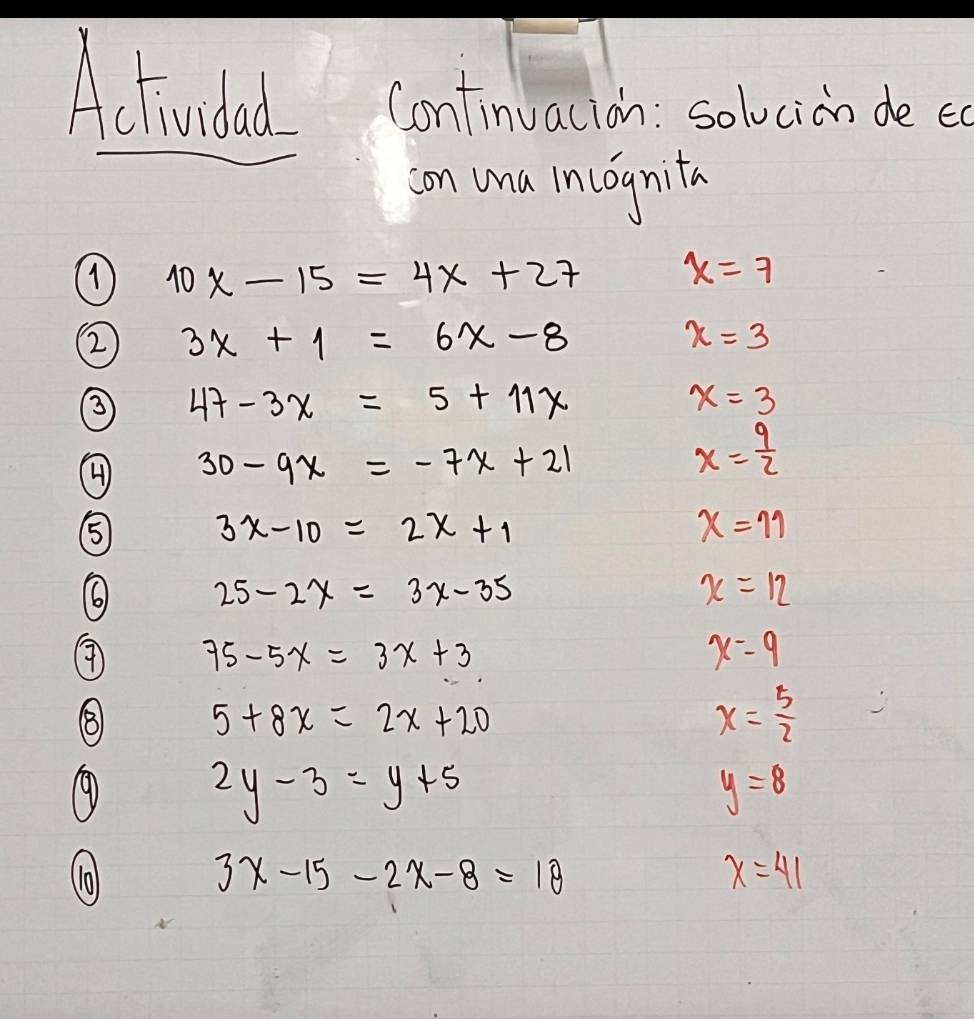 Actividad Continuación: solución de ec
con una incógnita
① 10x - 15 = 4x + 27 x = 7
② 3x + 1 = 6x - 8 x = 3
③ 47 - 3x = 5 + 11x x = 3
④ 30 - 9x = -7x + 21 x = 9/2
⑤ 3x - 10 = 2x + 1 x = 11
⑥ 25 - 2x = 3x - 35 x = 12
⑦ 75 - 5x = 3x + 3 x = 9
⑧ 5 + 8x = 2x + 20 x = 5/2
⑨ 2y - 3 = y + 5 y = 8
⑩ 3x - 15 - 2x - 8 = 18 x = 41